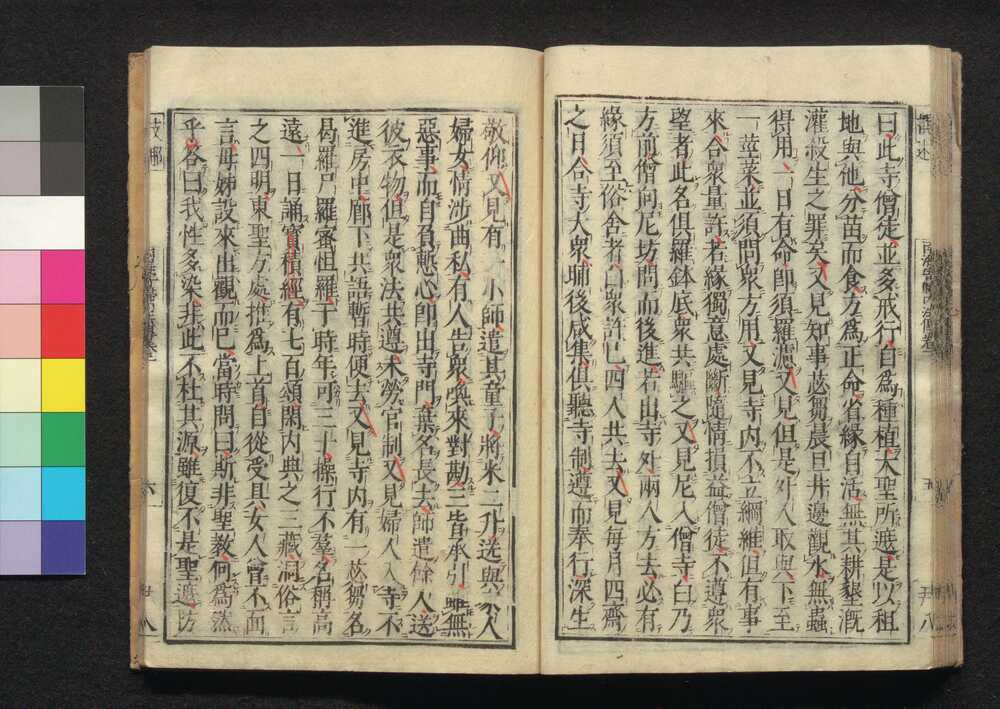 曰此寺僧徒並多戒行自爲種植大聖所遮是以租
地與他分苗而食方爲正命省緣自活無其耕墾漑
灌殺生之罪矣又見知事苾蒭晨旦井邊觀水無蟲
得用一日有命即須羅濾又見但是外人取與下至
一莖菜並須問衆方用又見寺内不立綱維但有事
來合衆量許若緣獨意處斷隨情損益僧徒不遵衆
望者此名俱羅鉢底衆共驅之又見尼入僧寺白乃
方前僧向尼坊問而後進若出寺外兩人方去必有
緣須至俗舍者白衆許已四人共去又見每月四齋
之日合寺大衆晡後咸集俱聽寺制遵而奉行深生
敬仰又見有一小師遣其童子將米二升送與家人
婦女情涉曲私有人告衆喚來對勘三皆承引雖無
惡事而自負慙心即出寺門棄名長去師遣餘人送
彼衣物但是衆法共遵未勞官制又見婦人入寺不
進房中廊下共語暫時便去又見寺内有一苾蒭名
曷羅尸羅蜜怛羅于時年可三十操行不羣名稱高
遠一日誦寳積經有七百頌閑内典之三藏洞俗言
之四明東聖方處推爲上首自從受具女人曾不面
言母姊設來出觀而已當時問曰斯非聖教何爲然
乎答曰我性多染非此不杜其源雖復不是聖遮防